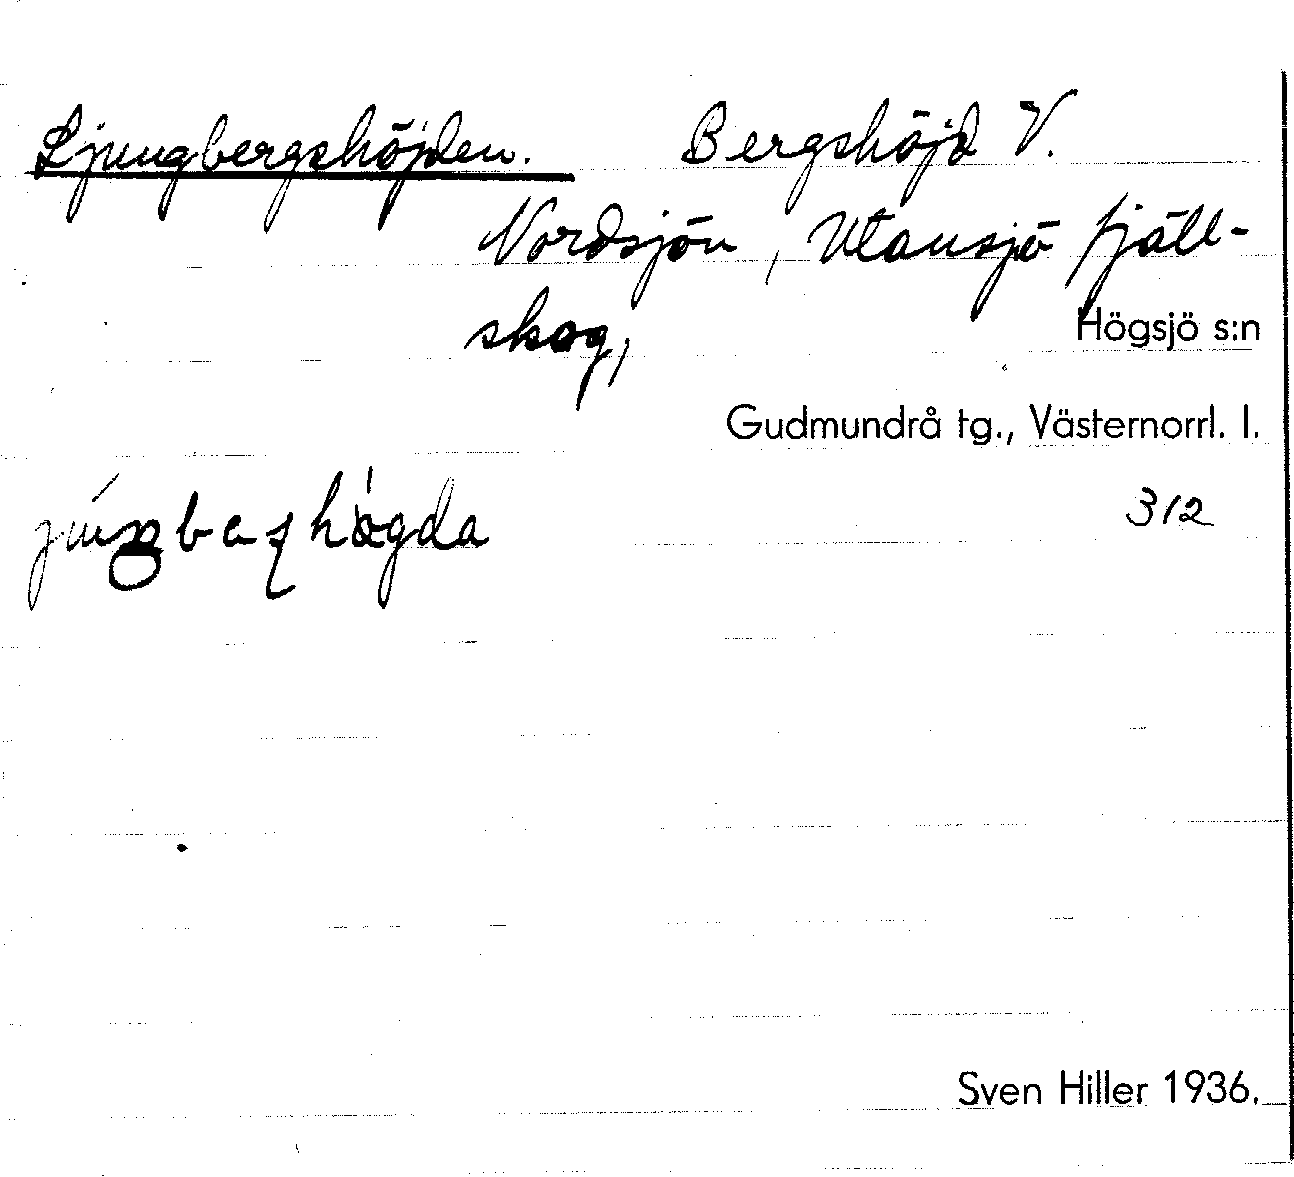 Ljungbergshöjden. Bergshöjd V.
Nordsjön, Utansjö fjäll-
skog,
Högsjö s:n
Gudmundrå tg., Västernorrl. l.
312
Sven Hiller 1936.